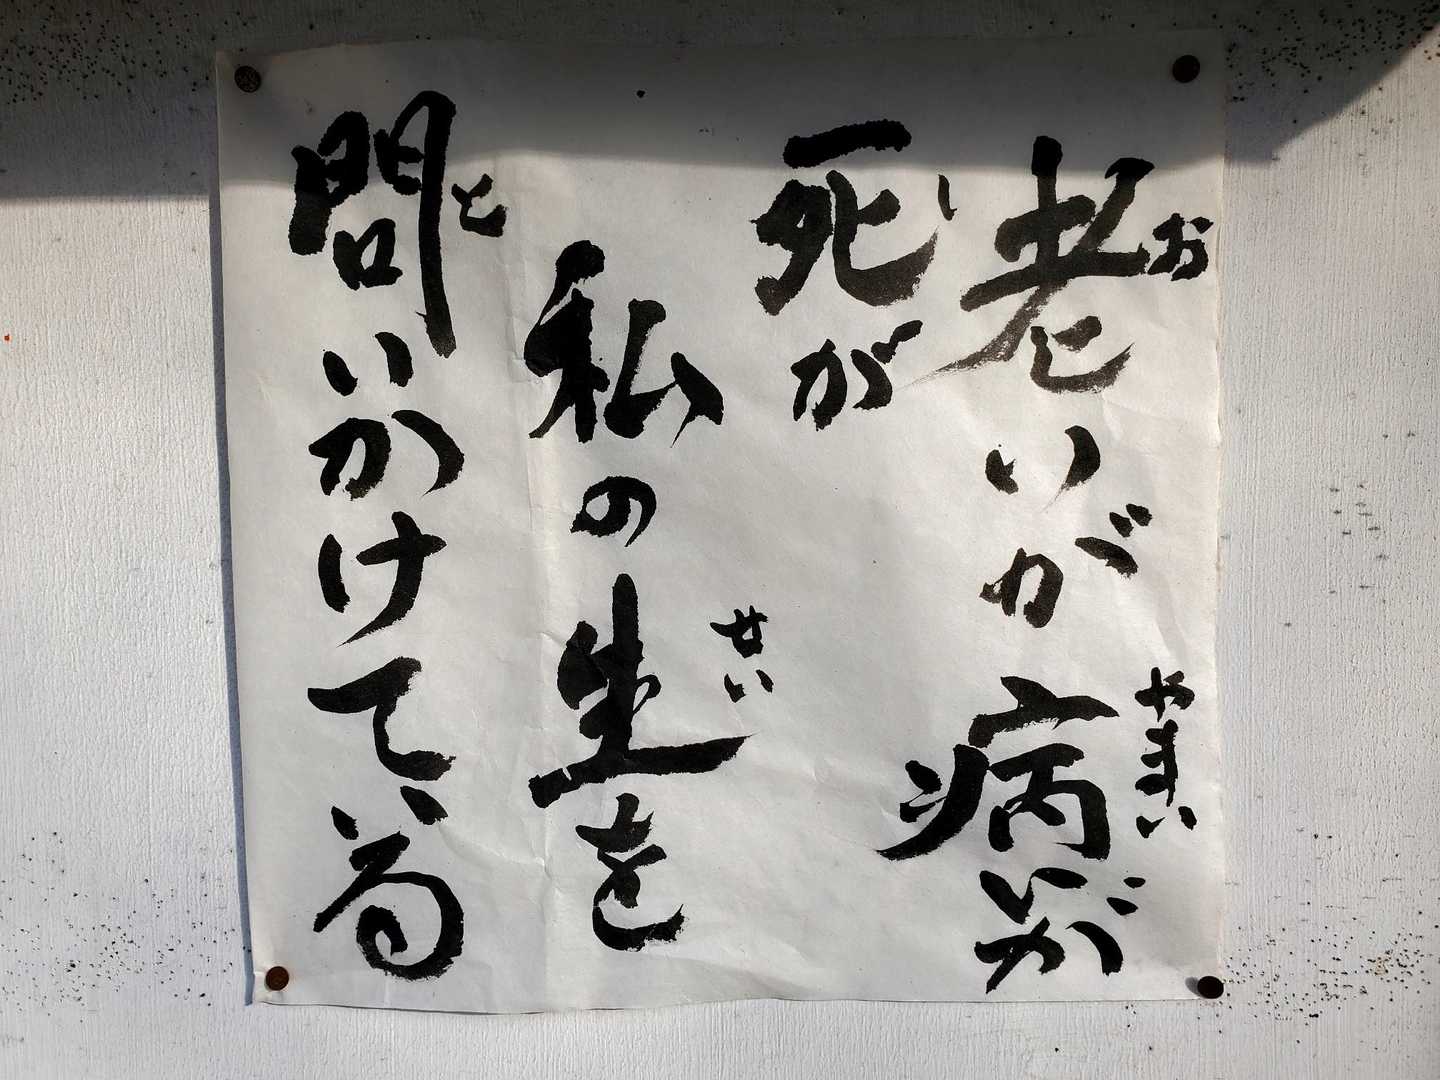 老いが病いが
死が
私の生を
問いかけている
お
やまい
し
せい
と